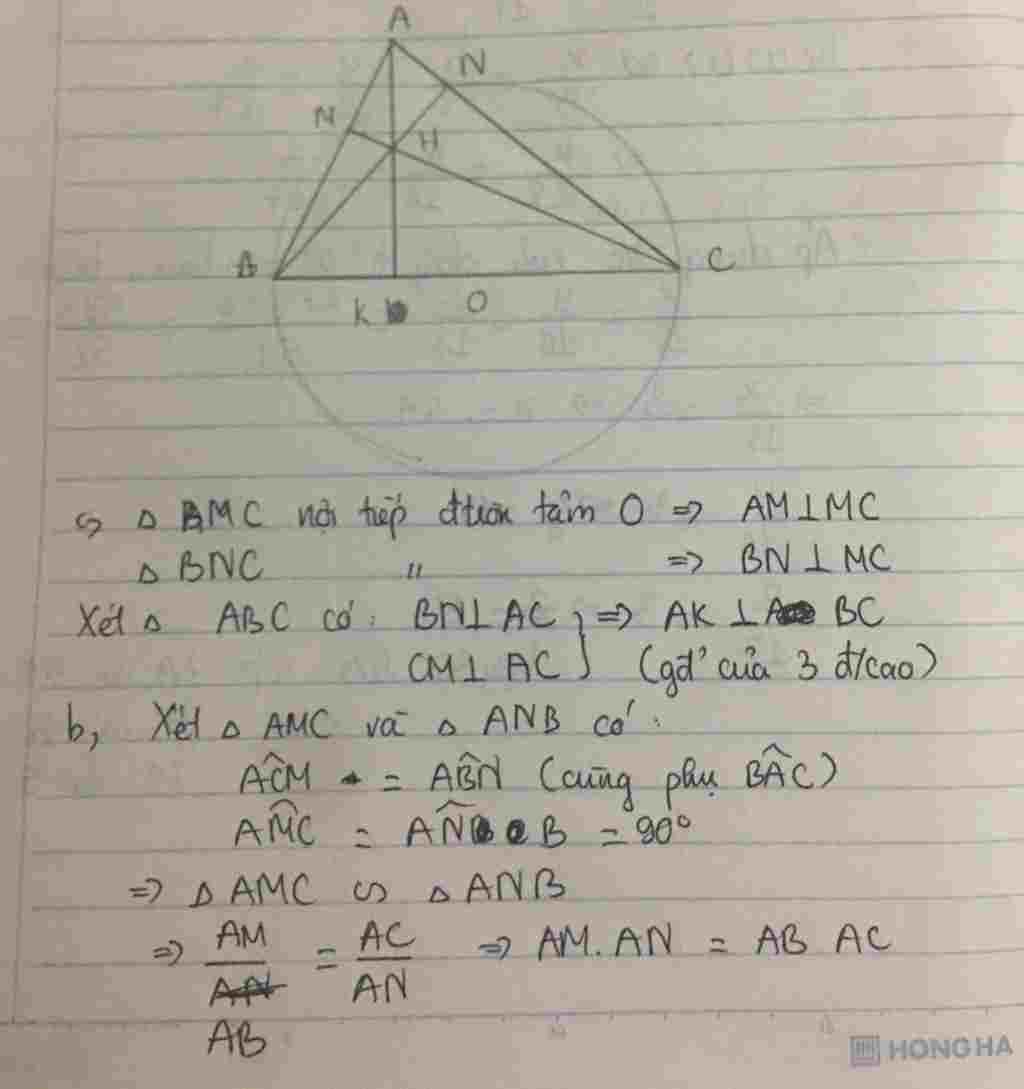 A
N
N
H
A
C
K
O
a, Δ BMC nội tiếp đtròn tâm O => AM⊥MC
Δ BNC " => BN⊥MC
Xét Δ ABC có: BN⊥AC } => AK⊥ BC
CM⊥AC } (gđ' của 3 đ/cao)
b, Xét Δ AMC và Δ ANB có:
ACM = ABN (cùng phụ BAC)
AMC = AN B = 90°
=> Δ AMC ∽ Δ ANB
=> AM/AB = AC/AN => AM. AN = AB AC
HONG HA